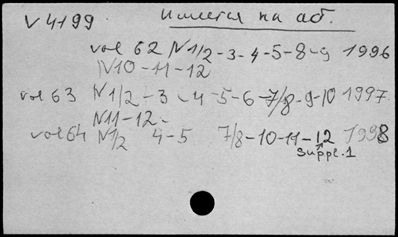 V 4199 Имеется на аб.
vol 62 N1/2-3-4-5-8-9 1996
N10-11-12
vol 63 N1/2-3-4-5-6-7/8-9-10 1997
N11-12-
vol 64 N1/2 4-5 7/8-10-11-12 1998
suppl.1